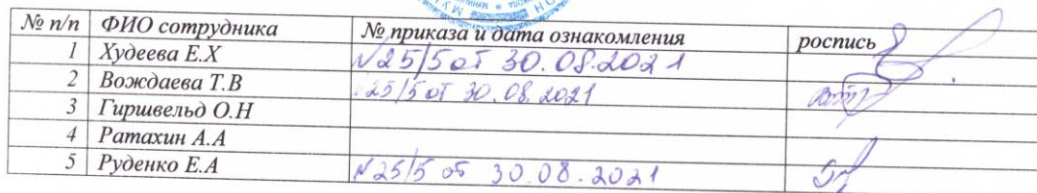 № п/п ФИО сотрудника № приказа и дата ознакомления роспись
1 Худеева Е.Х №25/5 от 30.08.2021
2 Вождаева Т.В №25/5 от 30.08.2021
3 Гиршвельд О.Н
4 Ратахин А.А
5 Руденко Е.А №25/5 от 30.08.2021